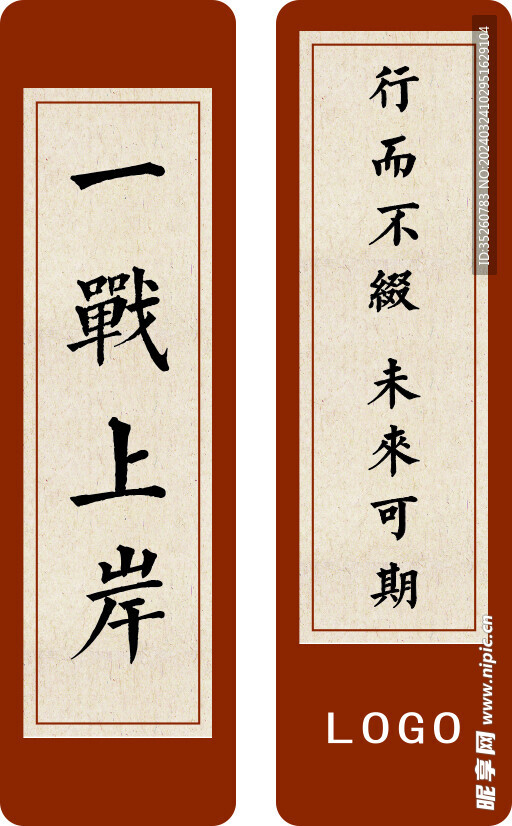 一戰上岸
行而不綴 未來可期
LOGO
ID:35260783 NO:20240324102951629104
昵享网 www.nipic.cn